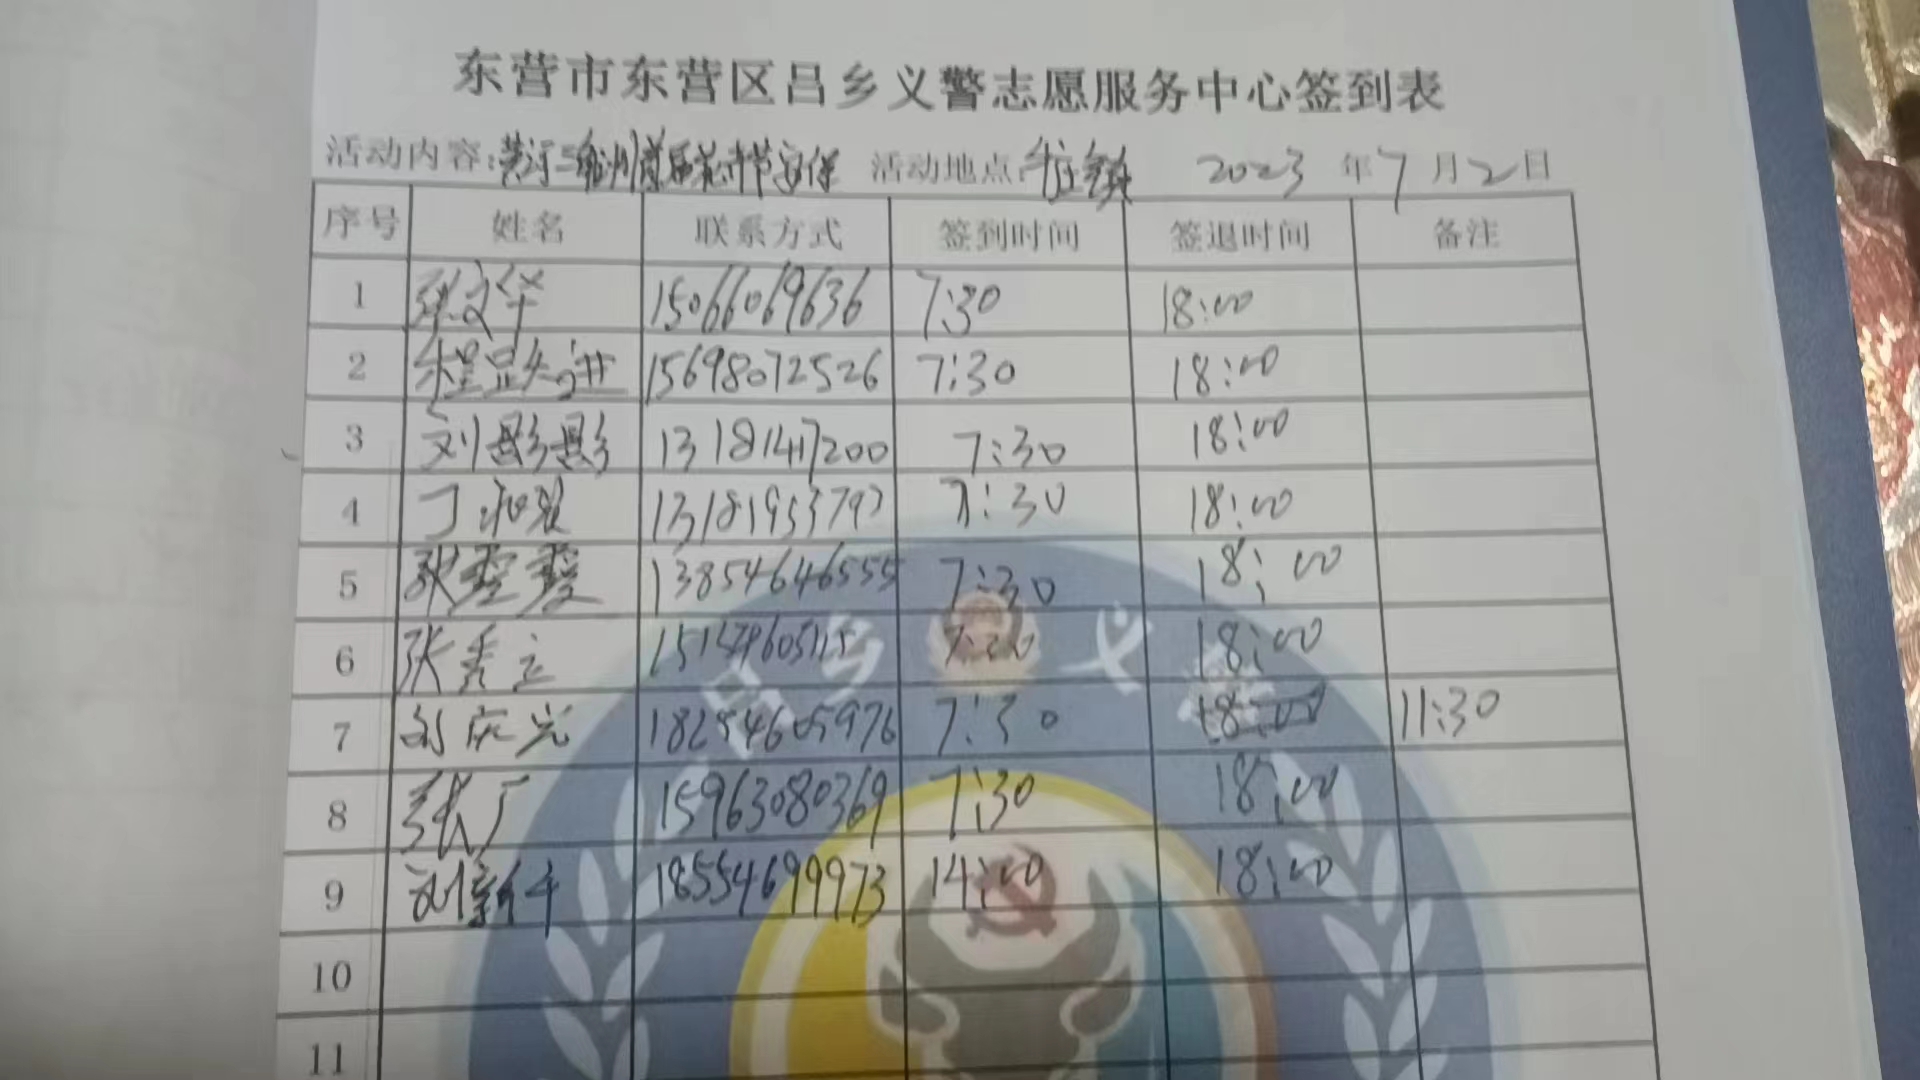 东营市东营区吕乡义警志愿服务中心签到表
活动内容:黄河三角洲首届花卉节安保 活动地点: 2023 年 7 月 2 日
序号 姓名 联系方式 签到时间 签退时间 备注
1 张文华 15066069636 7:30 18:00
2 15698072526 7:30 18:00
3 刘影影 13181417200 7:30 18:00
4 13181953797 7:30 18:00
5 13854646555 7:30 18:00
6 张秀 7:30 18:00
7 刘庆光 18254605976 7:30 18:00 11:30
8 张广 15963080369 7:30 18:00
9 刘新年 18554699973 14:00 18:00
10
11
吕乡义警